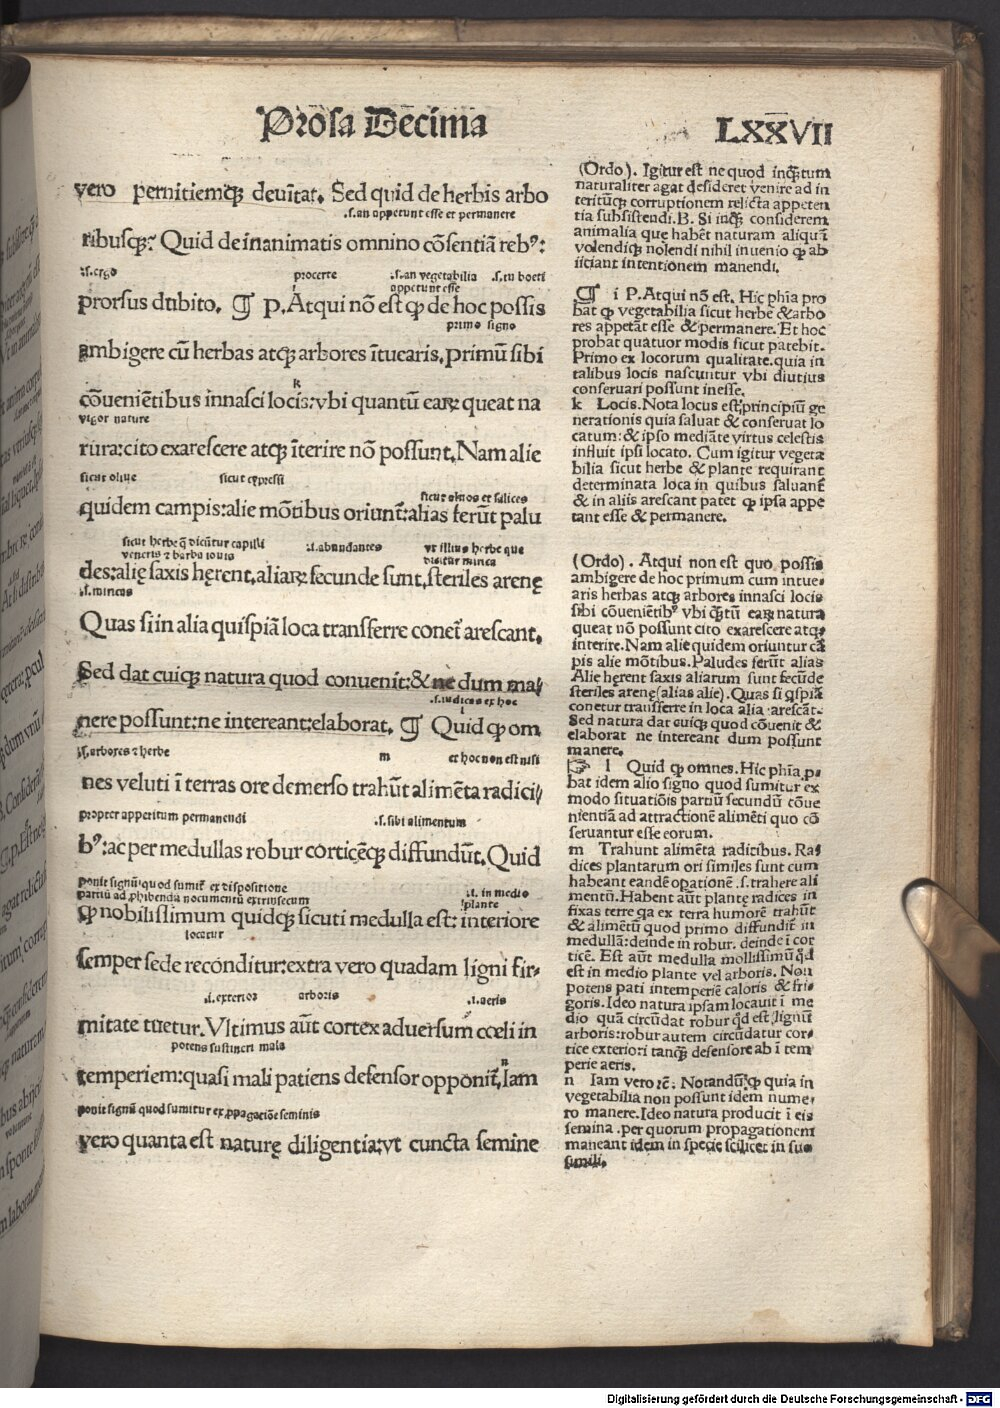 Prosa Decima
LXXVII
vero pernitiemq̃ʒ deuītat. Sed quid de herbis arbo
.s.an appetunt esse et permanere
ribusqʒ? Quid de inanimatis omnino cōsentiā rebꝰ:
.s.ergo procerte .s.an vegetabilia .s.tu boeti
appetunt esse
prorsus dubito. ¶ P. Atqui nō est ꝙ de hoc possis
primo signo
ambigere cū herbas atqʒ arbores ītuearis. primū sibi
k
cōueniētibus innasci locis: vbi quantū earꝝ queat na
vigor nature
tura: cito exarescere atqʒ īterire nō possunt. Nam alie
sicut oliue sicut cypressi
sicut alnos et salices
quidem campis: alie mōtibus oriunt̄: alias ferūt palu
sicut herbe q̄ dicūtur capilli .i.abundantes vt illius herbe que
veneris ⁊ barba iouis dicitur minea
des: alię saxis hęrent, aliarꝝ fecunde sunt, steriles arenę
.s.mineas
Quas si in alia quispiā loca transferre conet̄ arescant.
Sed dat cuiqʒ natura quod conuenit: & ne dum ma/
.s.iudicas ex hoc
l
nere possunt: ne intereant: elaborat. ¶ Quid ꝙ om
.s.arbores ⁊ herbe m et hoc non est nisi
nes veluti ī terras ore demerso trahūt alimēta radici/
propter appetitum permanendi .s.sibi alimentum
bꝰ: ac per medullas robur corticēqʒ diffundūt. Quid
ponit signū quod sumit̄ ex dispositione
partiū ad ꝓhibendū nocumentū extrinsecum .i. in medio
plante
ꝙ nobilissimum quidqʒ sicuti medulla est: interiore
locatur
semper sede reconditur: extra vero quadam ligni fir-
.i.exterior arboris .i.aeris
mitate tuetur. Vltimus aūt cortex aduersum cœli in
potens sustineri mala
n
temperiem: quasi mali patiens defensor opponit̄. Iam
ponit signū quod sumitur ex ꝓpagatiōe seminis
vero quanta est naturę diligentia: vt cuncta semine
(Ordo). Igitur est ne quod inq̄tum
naturaliter agat desideret venire ad in
teritūqʒ corruptionem relicta appeten
tia subsistendi. B. Si inqʒ considerem
animalia que habēt naturam aliquā
volendiqʒ nolendi nihil inuenio ꝙ ab
iiciant intentionem manendi.
¶ i P. Atqui nō est. Hic phīa pro
bat ꝙ vegetabilia sicut herbe & arbo
res appetāt esse & permanere. Et hoc
probat quatuor modis sicut patebit.
Primo ex locorum qualitate. quia in
talibus locis nascuntur vbi diutius
conseruari possunt in esse.
k Locis. Nota locus est principiū ge
nerationis quia saluat & conseruat lo
catum: & ipso mediāte virtus celestis
influit ipsi locato. Cum igitur vegeta
bilia sicut herbe & plante requirant
determinata loca in quibus saluant̄
& in aliis arescant patet ꝙ ipsa appe
tant esse & permanere.
(Ordo). Atqui non est quo possis
ambigere de hoc primum cum intue-
aris herbas atqʒ arbores innasci locis
sibi cōuenientibꝰ vbi q̄tū earꝝ natura
queat nō possunt cito exarescere atqʒ
interire. Nam alie quidem oriuntur cā
pis alie mōtibus. Paludes ferūt alias
Alie hęrent saxis aliarum sunt fecūde
steriles arenę (alias alie). Quas si q̄spiā
conetur transferre in loca alia arescāt.
Sed natura dat cuiqʒ quod cōuenit &
elaborat ne intereant dum possunt
manere.
☞ l Quid ꝙ omnes. Hic phīa ꝓ-
bat idem alio signo quod sumitur ex
modo situatiōis partiū secundū cōue
nientiā ad attractionē alimēti quo cō
seruantur esse eorum.
m Trahunt alimēta radicibus. Ra-
dices plantarum ori similes sunt cum
habeant eandē oꝑationē .s. trahere ali
mentū. Habent aūt plante radices in
fixas terre qa ex terra humorē trahūt
& alimētū quod primo diffundit̄ in
medullā: deinde in robur. deinde ī cor
ticē. Est aūt medulla mollissimū qd̄
est in medio plante vel arboris. Non
potens pati intemperiē caloris & fri-
goris. Ideo natura ipsam locauit ī me
dio quā circūdat robur qd̄ est lignū
arboris: robur autem circūdatur cor-
tice exteriori tanqʒ defensore ab ī tem
perie aeris.
n Iam vero ⁊c̄. Notandū qʒ quia in
vegetabilia non possunt idem nume-
ro manere. Ideo natura producit ī eis
semina .per quorum propagationem
maneant idem in specie scilicet in suo
simili.
Digitalisierung gefördert durch die Deutsche Forschungsgemeinschaft - DFG